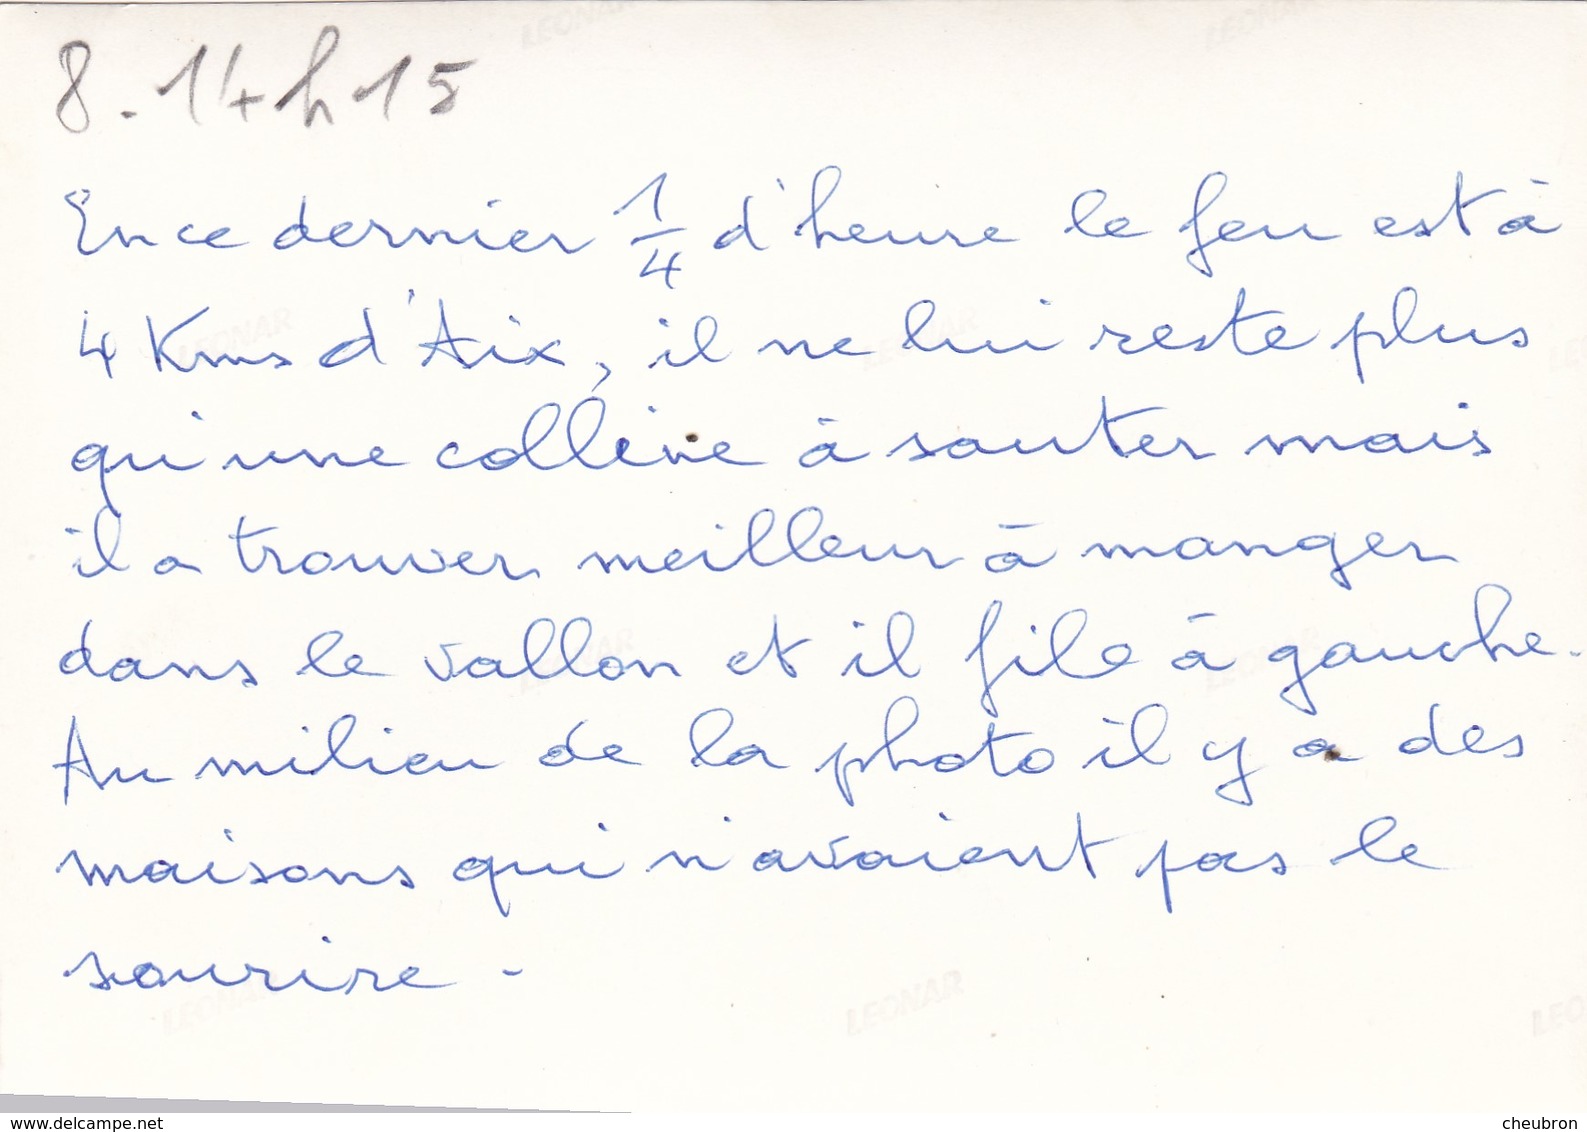 8. 14h15
En ce dernier 1/4 d'heure le feu est à
4 Kms d'Aix, il ne lui reste plus
qu'une colline à sauter mais
il a trouver meilleur à manger
dans le vallon et il file à gauche.
Au milieu de la photo il y a des
maisons qui n'avaient pas le
sourire -
LEONAR
www.delcampe.net
cheubron